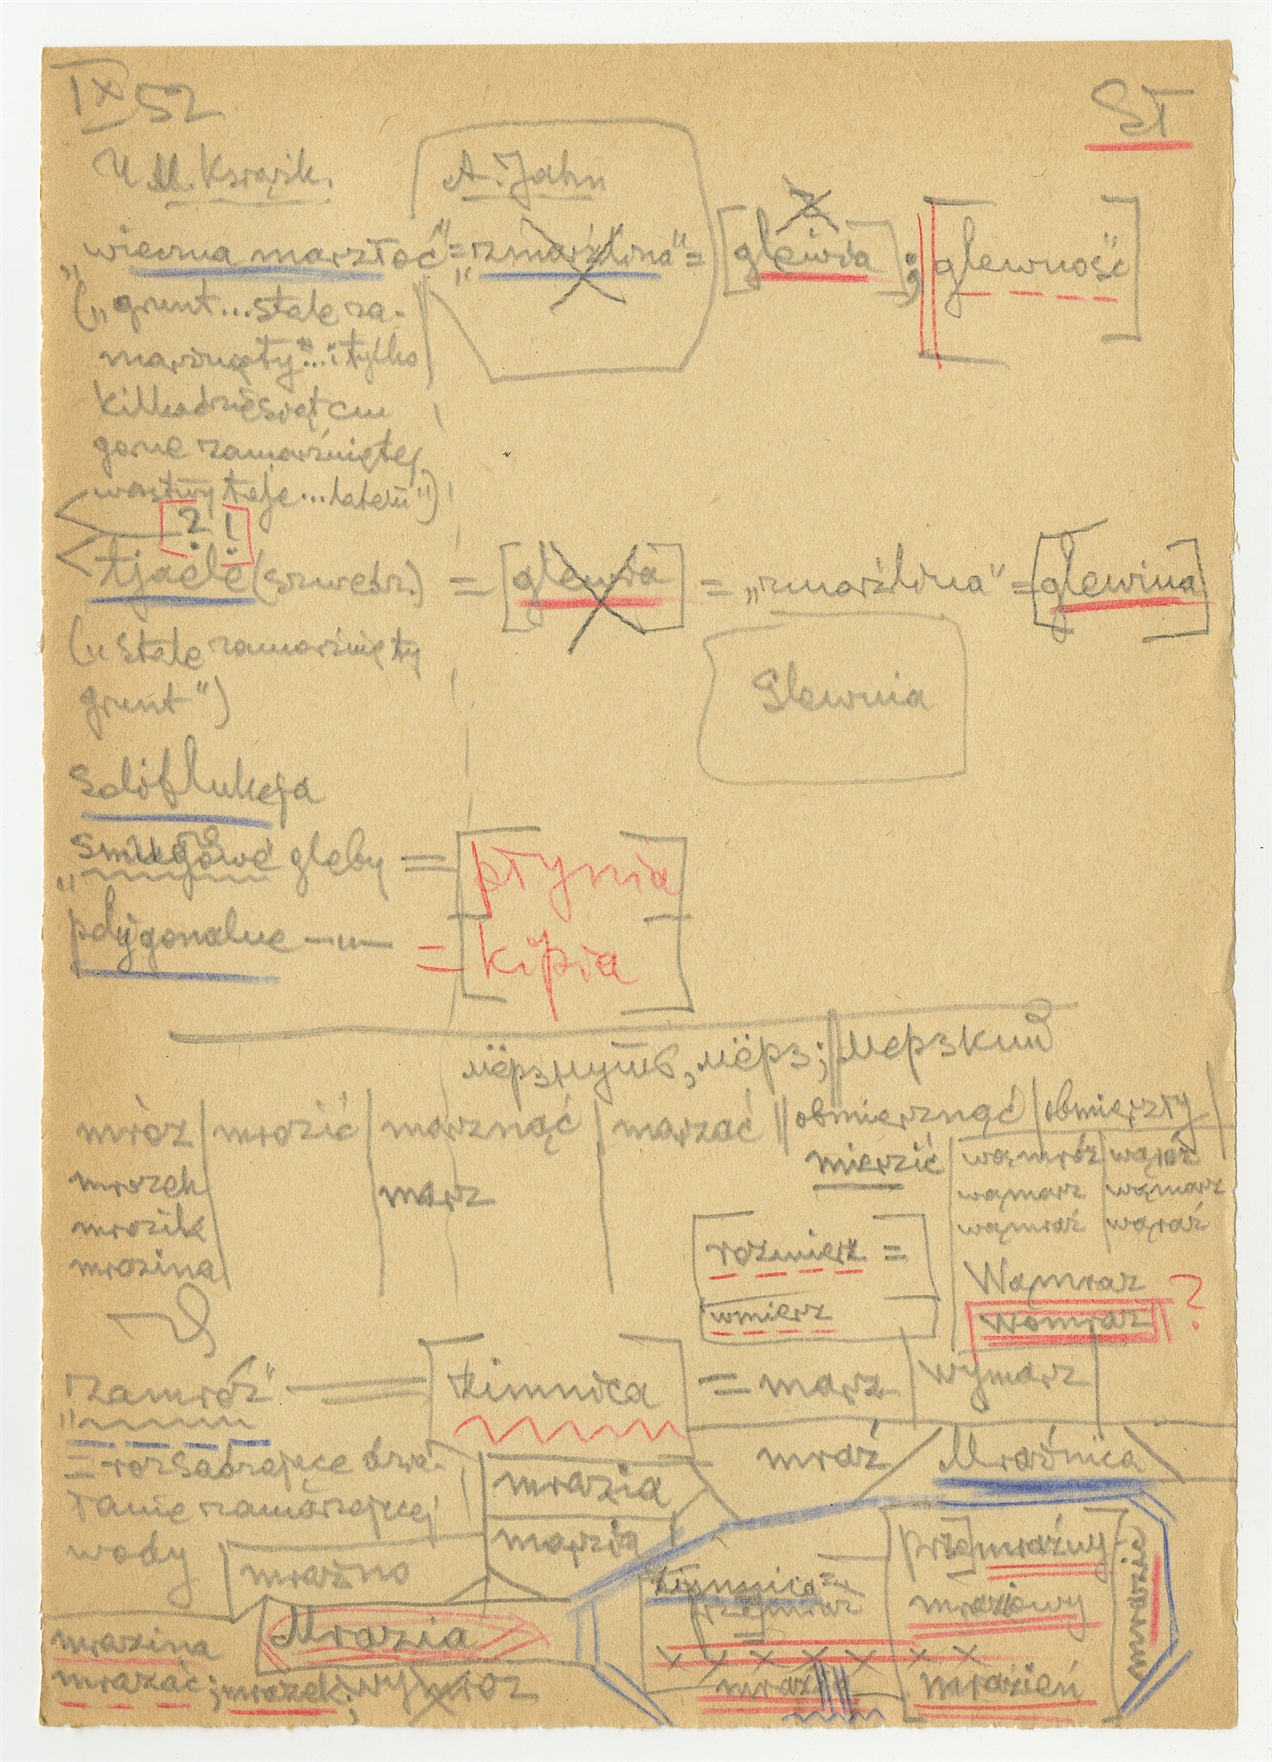 IX 52
ST
U M. Książk.
A. Jahn
„wieczna marzłoć" = „zmarzlina" = [glewia]; [glewność]
(„grunt... stale za-
marznięty"... i tylko
kilkadziesiąt cm
górne zamarzniętej
warstwy taje... latem")
? !
tjaele (szwedz.) = [glewia] = „zmarźlina" = [glewina]
(„stale zamarznięty
grunt")
Glewnia
soliflukcja
„smugowe gleby = [płynia]
polygonalne —"— = [kipia]
мёрзнуть, мёрз; мерзкий
mróz | mrozić | marznąć | marzać || obmierznąć | obmierzły
mrozek
mrozik
mrozina
marz
mierzić
wąmróz
wąmarz wąmarz
wąmraź
rozmierz =
wmierz
Wąmraz
Womraz ?
„zamróz" = [zimnica] = marz | wymarz
= rozsadzające dzia-
łanie zamarzającej
wody
mraź / Mroźnica
mrazia
marzia
mraźno
zimnica =
przemraz
=
prze]mraźny
mraziowy
mrazień
mrazina
Mrazia
mrazać; mrozek; wymróz
mraź